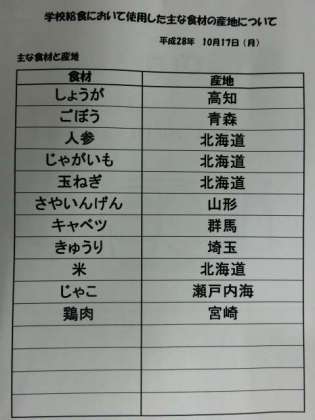 学校給食において使用した主な食材の産地について
平成28年 10月17日（月）
主な食材と産地
食材 産地
しょうが 高知
ごぼう 青森
人参 北海道
じゃがいも 北海道
玉ねぎ 北海道
さやいんげん 山形
キャベツ 群馬
きゅうり 埼玉
米 北海道
じゃこ 瀬戸内海
鶏肉 宮崎